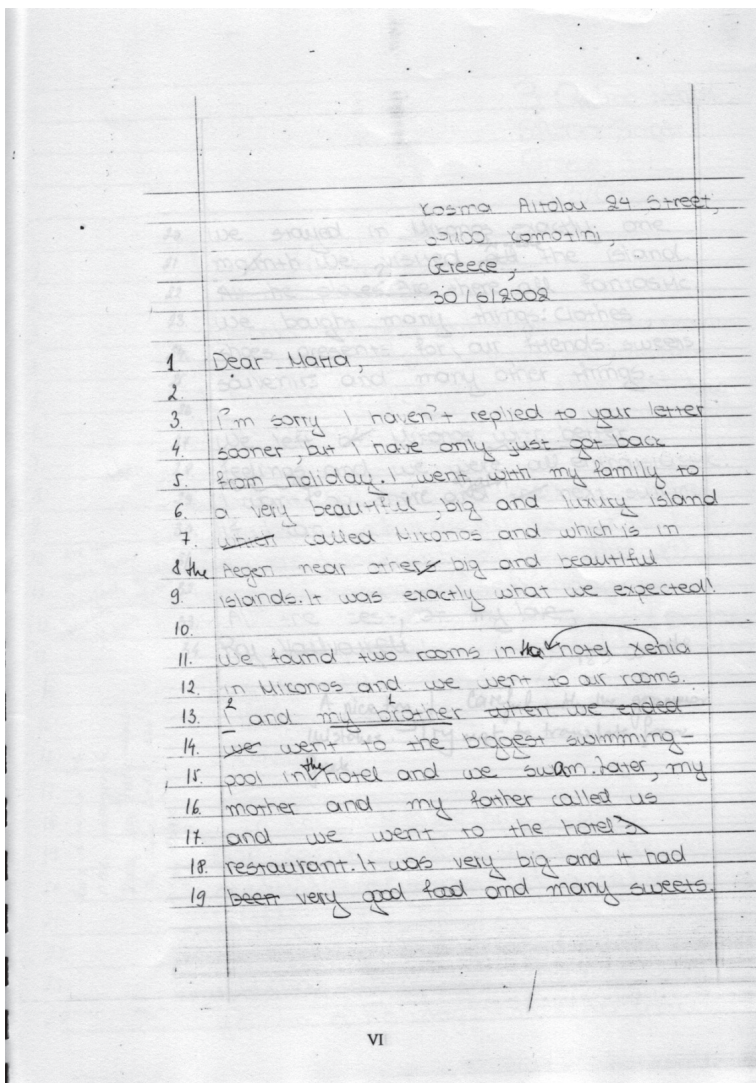 Kosma Aitolou 24 Street,
Komotini,
Greece,
30/6/2002
1 Dear Maria,
2.
3. I'm sorry I haven't replied to your letter
4. sooner, but I have only just got back
5. from holiday. I went with my family to
6. a very beautiful, big and luxury island
7. which called Mikonos and which is in
8 the Aegen near others big and beautiful
9. islands. It was exactly what we expected!
10.
11. We found two rooms in the hotel Xenia
12. in Mikonos and we went to air rooms.
13. 2 I and my 1 brother when we ended
14. we went to the biggest swimming-
15. pool in the hotel and we swam. Later, my
16. mother and my father called us
17. and we went to the hotel's
18. restaurant. It was very big and it had
19 been very good food and many sweets.
VI